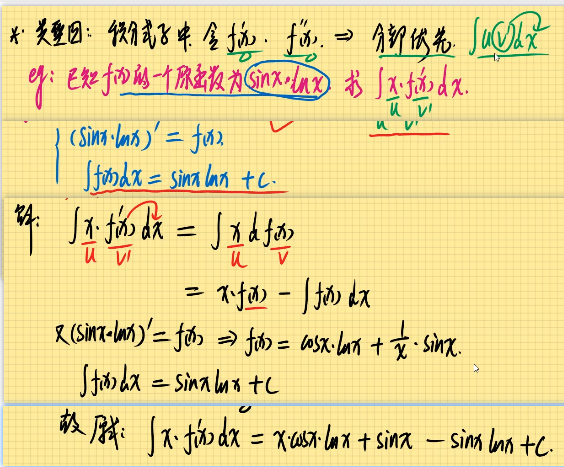 * 类型四：积分式子中，含 f'(x)、f''(x) ⇒ 分部优先. ∫u(v')dx
eg：已知 f(x) 的一个原函数为 sinx·lnx，求 ∫x·f'(x)dx.
u v'
u v'
(sinx·lnx)' = f(x).
∫f(x)dx = sinx lnx + C.
解：∫x·f'(x)dx = ∫x d f(x)
u v' u v
= x·f(x) − ∫f(x)dx
又(sinx·lnx)' = f(x) ⇒ f(x) = cosx·lnx + 1/x·sinx.
∫f(x)dx = sinx lnx + C
故原式：∫x·f'(x)dx = x·cosx·lnx + sinx − sinx lnx + C.